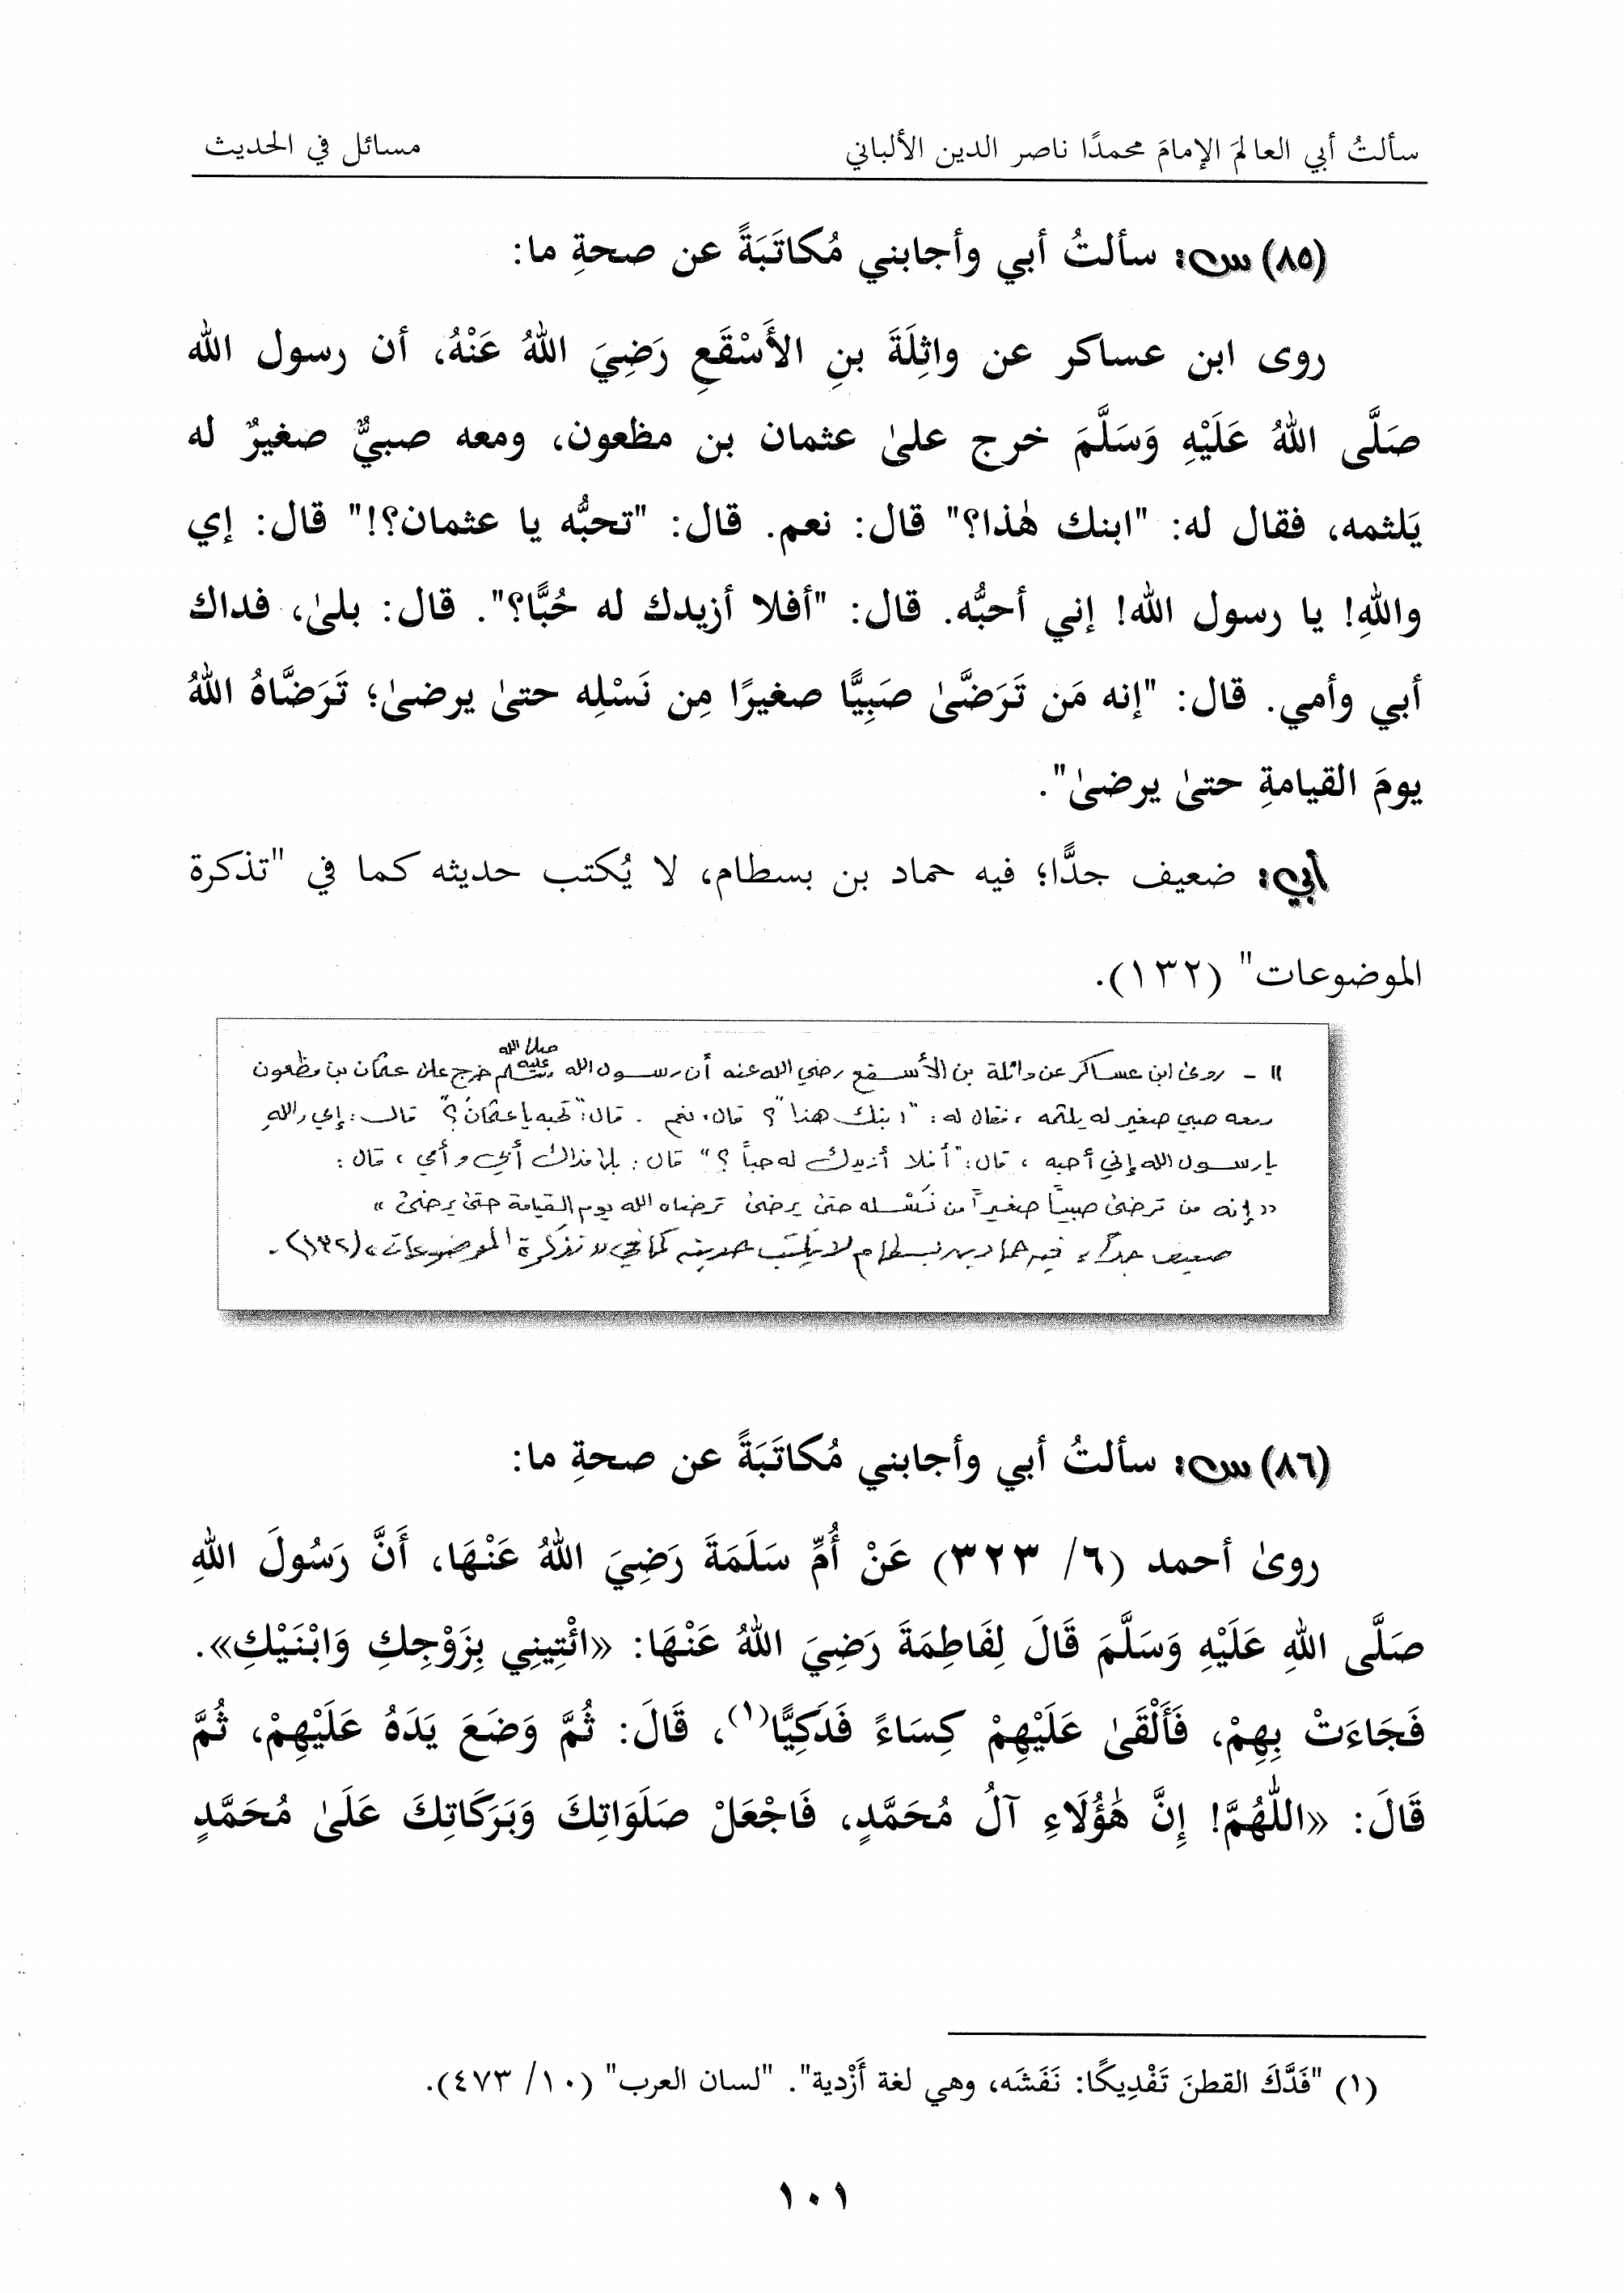 سألتُ أبي العالمَ الإمامَ محمدًا ناصر الدين الألباني مسائل في الحديث
(٨٥) س: سألتُ أبي وأجابني مُكاتَبَةً عن صحةِ ما:
روى ابن عساكر عن واثِلَةَ بنِ الأَسْقَعِ رَضِيَ اللهُ عَنْهُ، أن رسول الله
صَلَّى اللهُ عَلَيْهِ وَسَلَّمَ خرج علىٰ عثمان بن مظعون، ومعه صبيٌّ صغيرٌ له
يَلثمه، فقال له: "ابنك هٰذا؟" قال: نعم. قال: "تحبُّه يا عثمان؟!" قال: إي
واللهِ! يا رسول الله! إني أحبُّه. قال: "أفلا أزيدك له حُبًّا؟". قال: بلىٰ، فداك
أبي وأمي. قال: "إنه مَن تَرَضَّىٰ صَبِيًّا صغيرًا مِن نَسْلِه حتىٰ يرضىٰ؛ تَرَضَّاهُ اللهُ
يومَ القيامةِ حتىٰ يرضىٰ".
أبي: ضعيف جدًّا؛ فيه حماد بن بسطام، لا يُكتب حديثه كما في "تذكرة
الموضوعات" (١٣٢).
١١ - روىٰ ابن عساكر عن واثلة بن الأسقع رضي الله عنه أن رسول الله صلى الله عليه وسلم خرج علىٰ عثمان بن مظعون
ومعه صبي صغير له يلثمه ، فقال له : "ابنك هذا" ؟ قال : نعم . قال : "تحبه يا عثمان ؟" قال : إي واللهِ
يا رسول الله إني أحبه ، قال : "أفلا أزيدك له حباً ؟" قال : بلىٰ فداك أبي وأمي ، قال :
«إنه من ترضىٰ صبياً صغيراً من نَسْله حتىٰ يرضىٰ ترضاه الله يوم القيامة حتىٰ يرضىٰ»
ضعيف جداً، فيه حماد بن بسطام لا يكتب حديثه كما في «تذكرة الموضوعات» (١٣٢).
(٨٦) س: سألتُ أبي وأجابني مُكاتَبَةً عن صحةِ ما:
روىٰ أحمد (٦/ ٣٢٣) عَنْ أُمِّ سَلَمَةَ رَضِيَ اللهُ عَنْهَا، أَنَّ رَسُولَ اللهِ
صَلَّى اللهِ عَلَيْهِ وَسَلَّمَ قَالَ لِفَاطِمَةَ رَضِيَ اللهُ عَنْهَا: «ائْتِينِي بِزَوْجِكِ وَابْنَيْكِ».
فَجَاءَتْ بِهِمْ، فَأَلْقَىٰ عَلَيْهِمْ كِسَاءً فَدَكِيًّا(١)، قَالَ: ثُمَّ وَضَعَ يَدَهُ عَلَيْهِمْ، ثُمَّ
قَالَ: «اللّٰهُمَّ! إِنَّ هَٰؤُلَاءِ آلُ مُحَمَّدٍ، فَاجْعَلْ صَلَوَاتِكَ وَبَرَكَاتِكَ عَلَىٰ مُحَمَّدٍ
(١) "فَدَّكَ القطنَ تَفْدِيكًا: نَفَشَه، وهي لغة أَزْدية". "لسان العرب" (١٠/ ٤٧٣).
١٠١